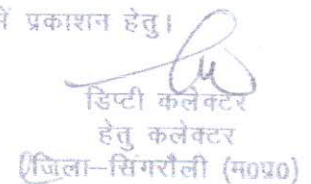 में प्रकाशन हेतु।
डिप्टी कलेक्टर
हेतु कलेक्टर
जिला–सिंगरौली (म0प्र0)